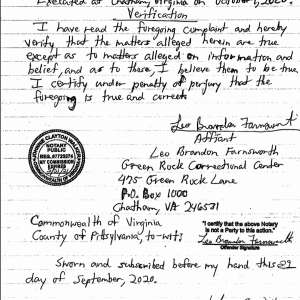 Executed at Chatham, Virginia on October 1, 2020.
Verification
I have read the foregoing complaint and hereby
verify that the matters alleged herein are true
except as to matters alleged on information and
belief, and as to these, I believe them to be true,
I certify under penalty of perjury that the
foregoing is true and correct.
Leo Brandon Farnsworth
Affiant
Leo Brandon Farnsworth
Green Rock Correctional Center
475 Green Rock Lane
P.O. Box 1000
Chatham, VA 24531
NOTARY
PUBLIC
MY COMMISSION
EXPIRES
Commonwealth of Virginia
County of Pittsylvania, to-wit:
"I certify that the above Notary
is not a Party to this action."
Leo Brandon Farnsworth
Offender Signature
Sworn and subscribed before my hand this 29
day of September, 2020.